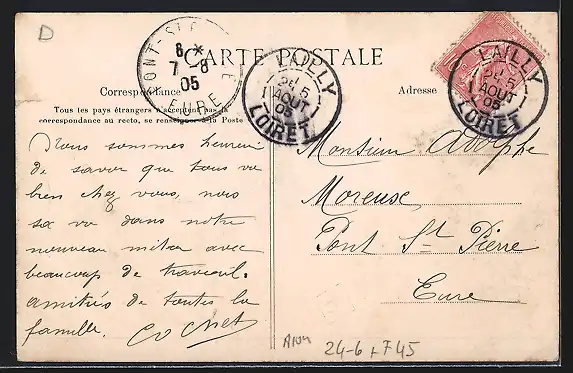 D
CARTE POSTALE
PONT-ST
8 *
7 -8
05
EURE
LAILLY
1 AOUT
05
LOIRET
LAILLY
1 AOUT
05
LOIRET
Correspondance
Adresse
Tous les pays étrangers n'acceptent pas la
correspondance au recto, se renseigner à la Poste
Nous sommes heureux
de savoir que tous va
bien chez vous, nous
sa va dans notre
nouveau métier avec
beaucoup de travail.
amitiés de toutes la
famille. Cochet
Monsieur Adolphe
Moreuse
Pont St Pierre
Eure
24-6 + F45